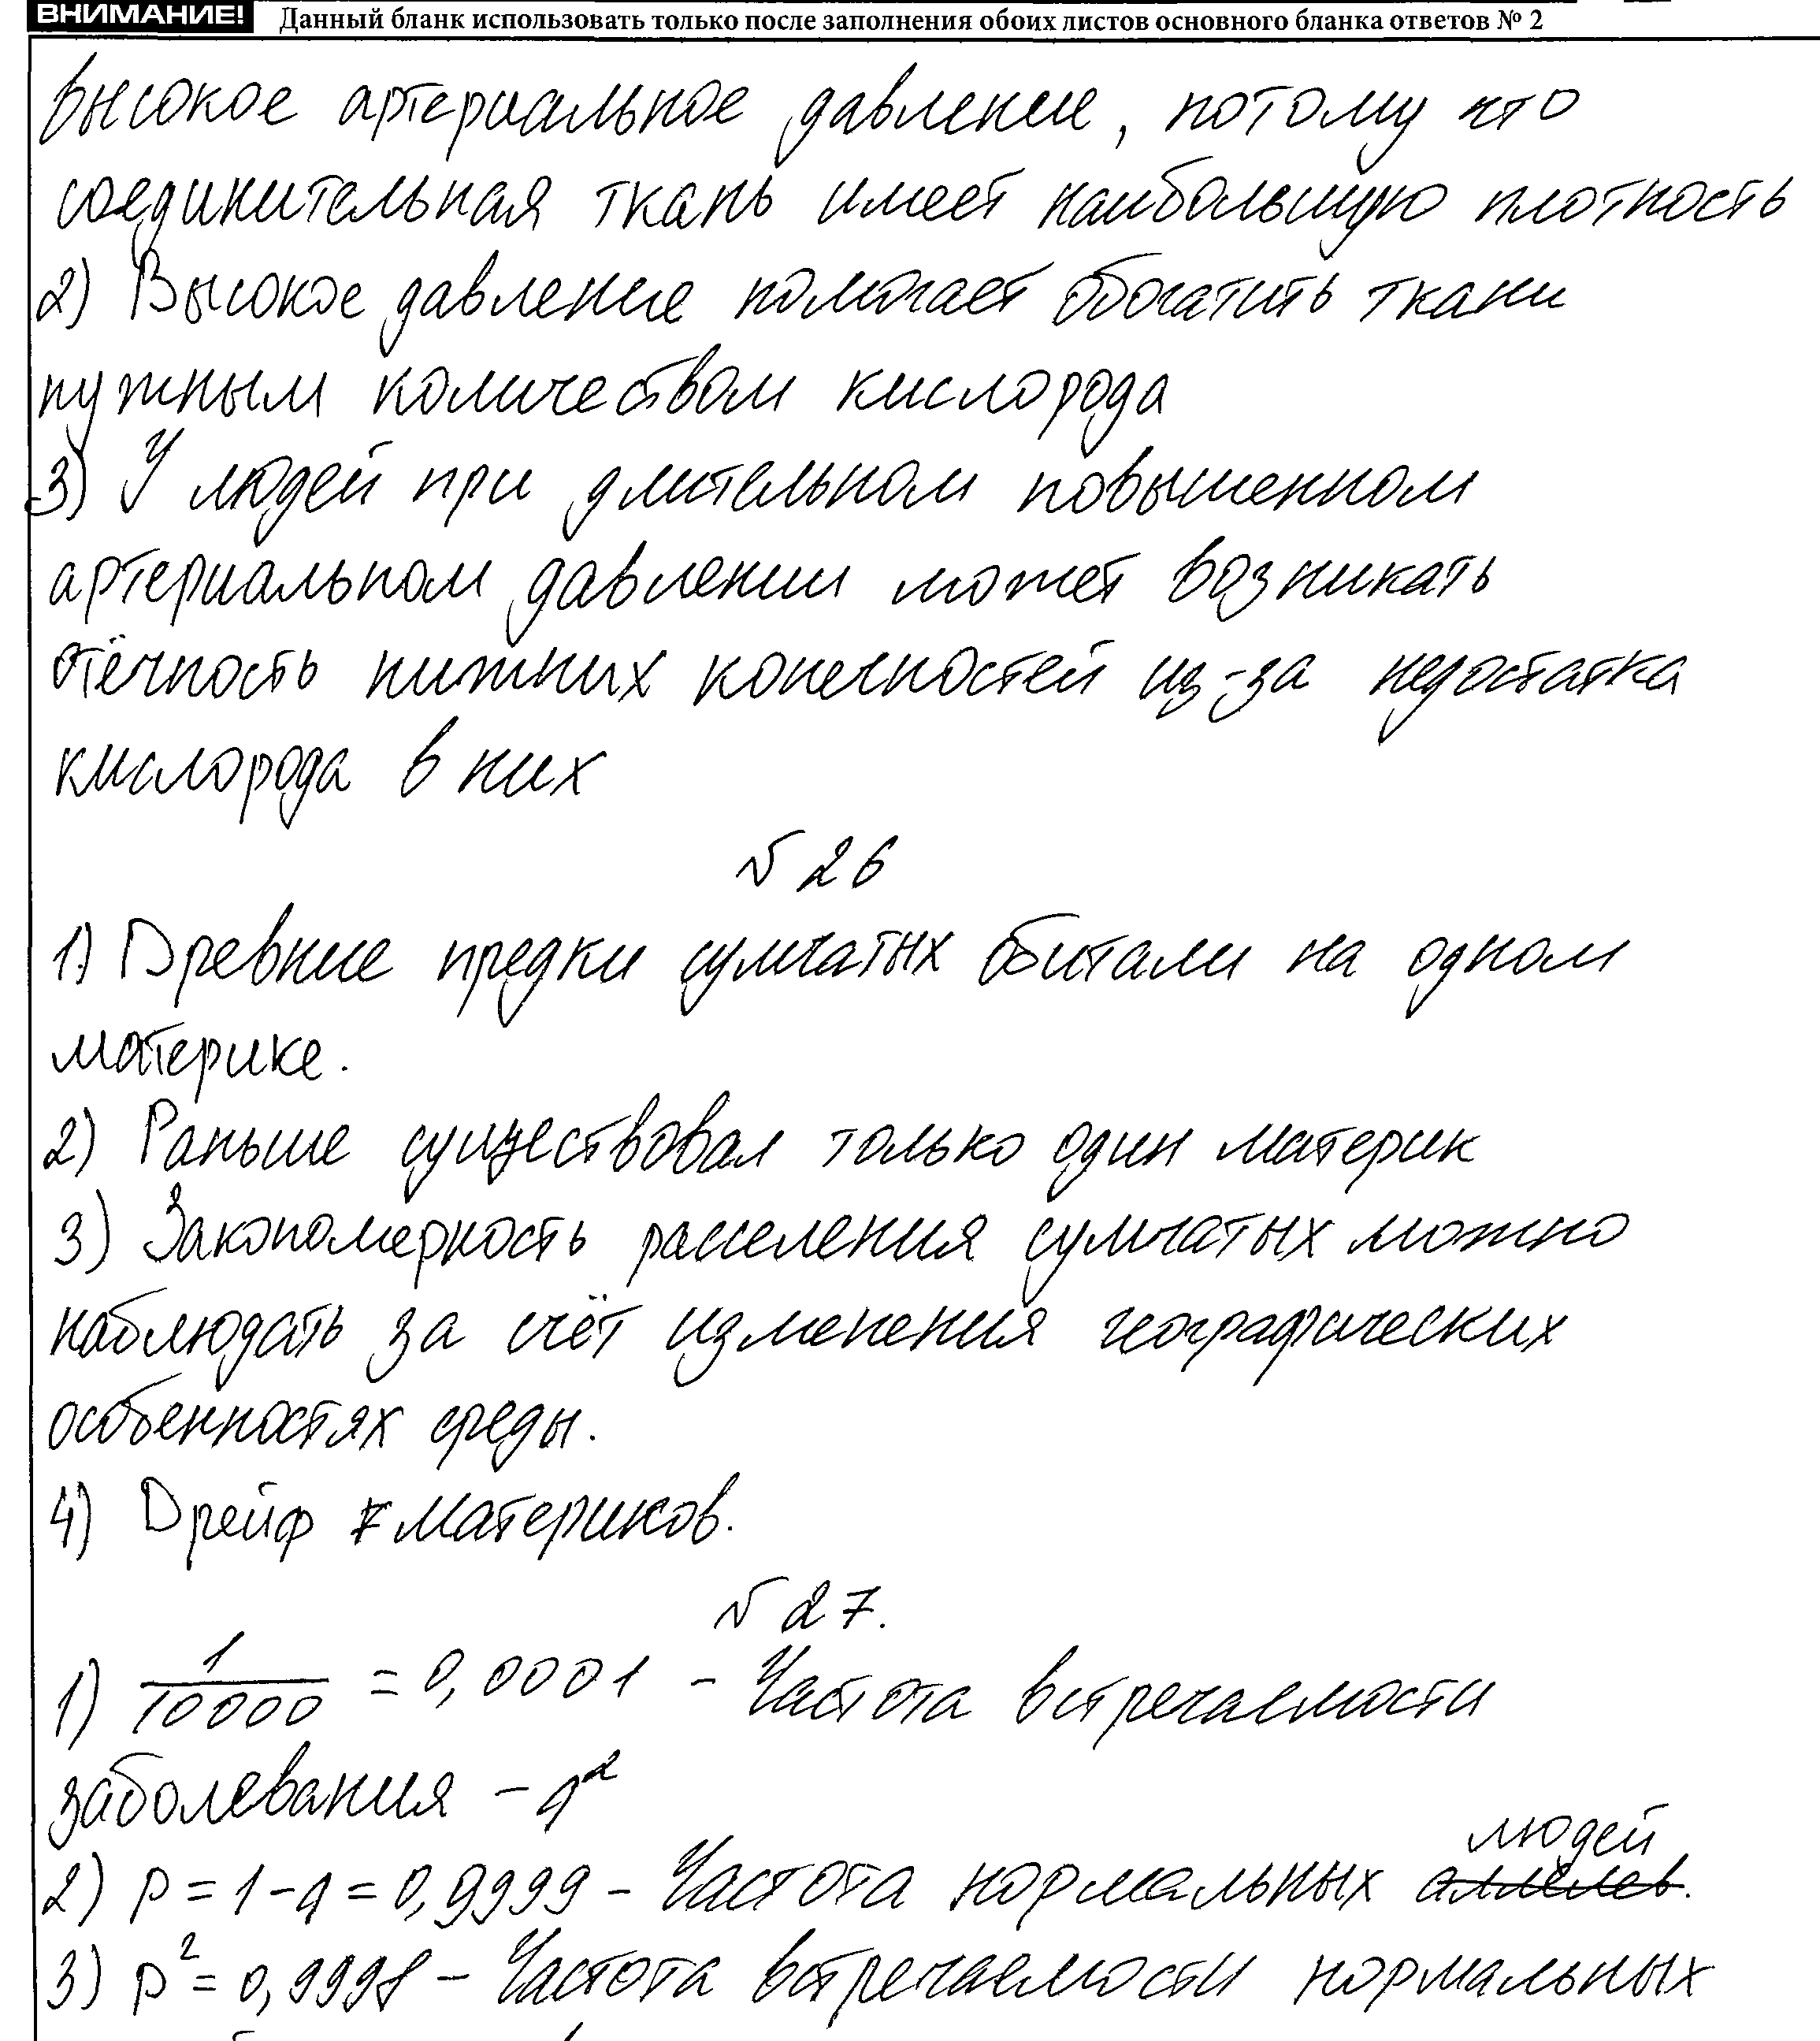 ВНИМАНИЕ! Данный бланк использовать только после заполнения обоих листов основного бланка ответов № 2
высокое артериальное давление, потому что
соединительная ткань имеет наибольшую плотность
2) Высокое давление помогает обогатить ткани
нужным количеством кислорода
3) У людей при длительном повышенном
артериальном давлении может возникать
отёчность нижних конечностей из-за недостатка
кислорода в них
№ 26
1) Древние предки сумчатых обитали на одном
материке.
2) Раньше существовал только один материк
3) Закономерность расселения сумчатых можно
наблюдать за счёт изменения географических
особенностях среды.
4) Дрейф материков.
№ 27.
1) 1/10000 = 0,0001 - Частота встречаемости
заболевания - q²
людей
2) p = 1 - q = 0,9999 - Частота нормальных аллелев.
3) p² = 0,9998 - Частота встречаемости нормальных